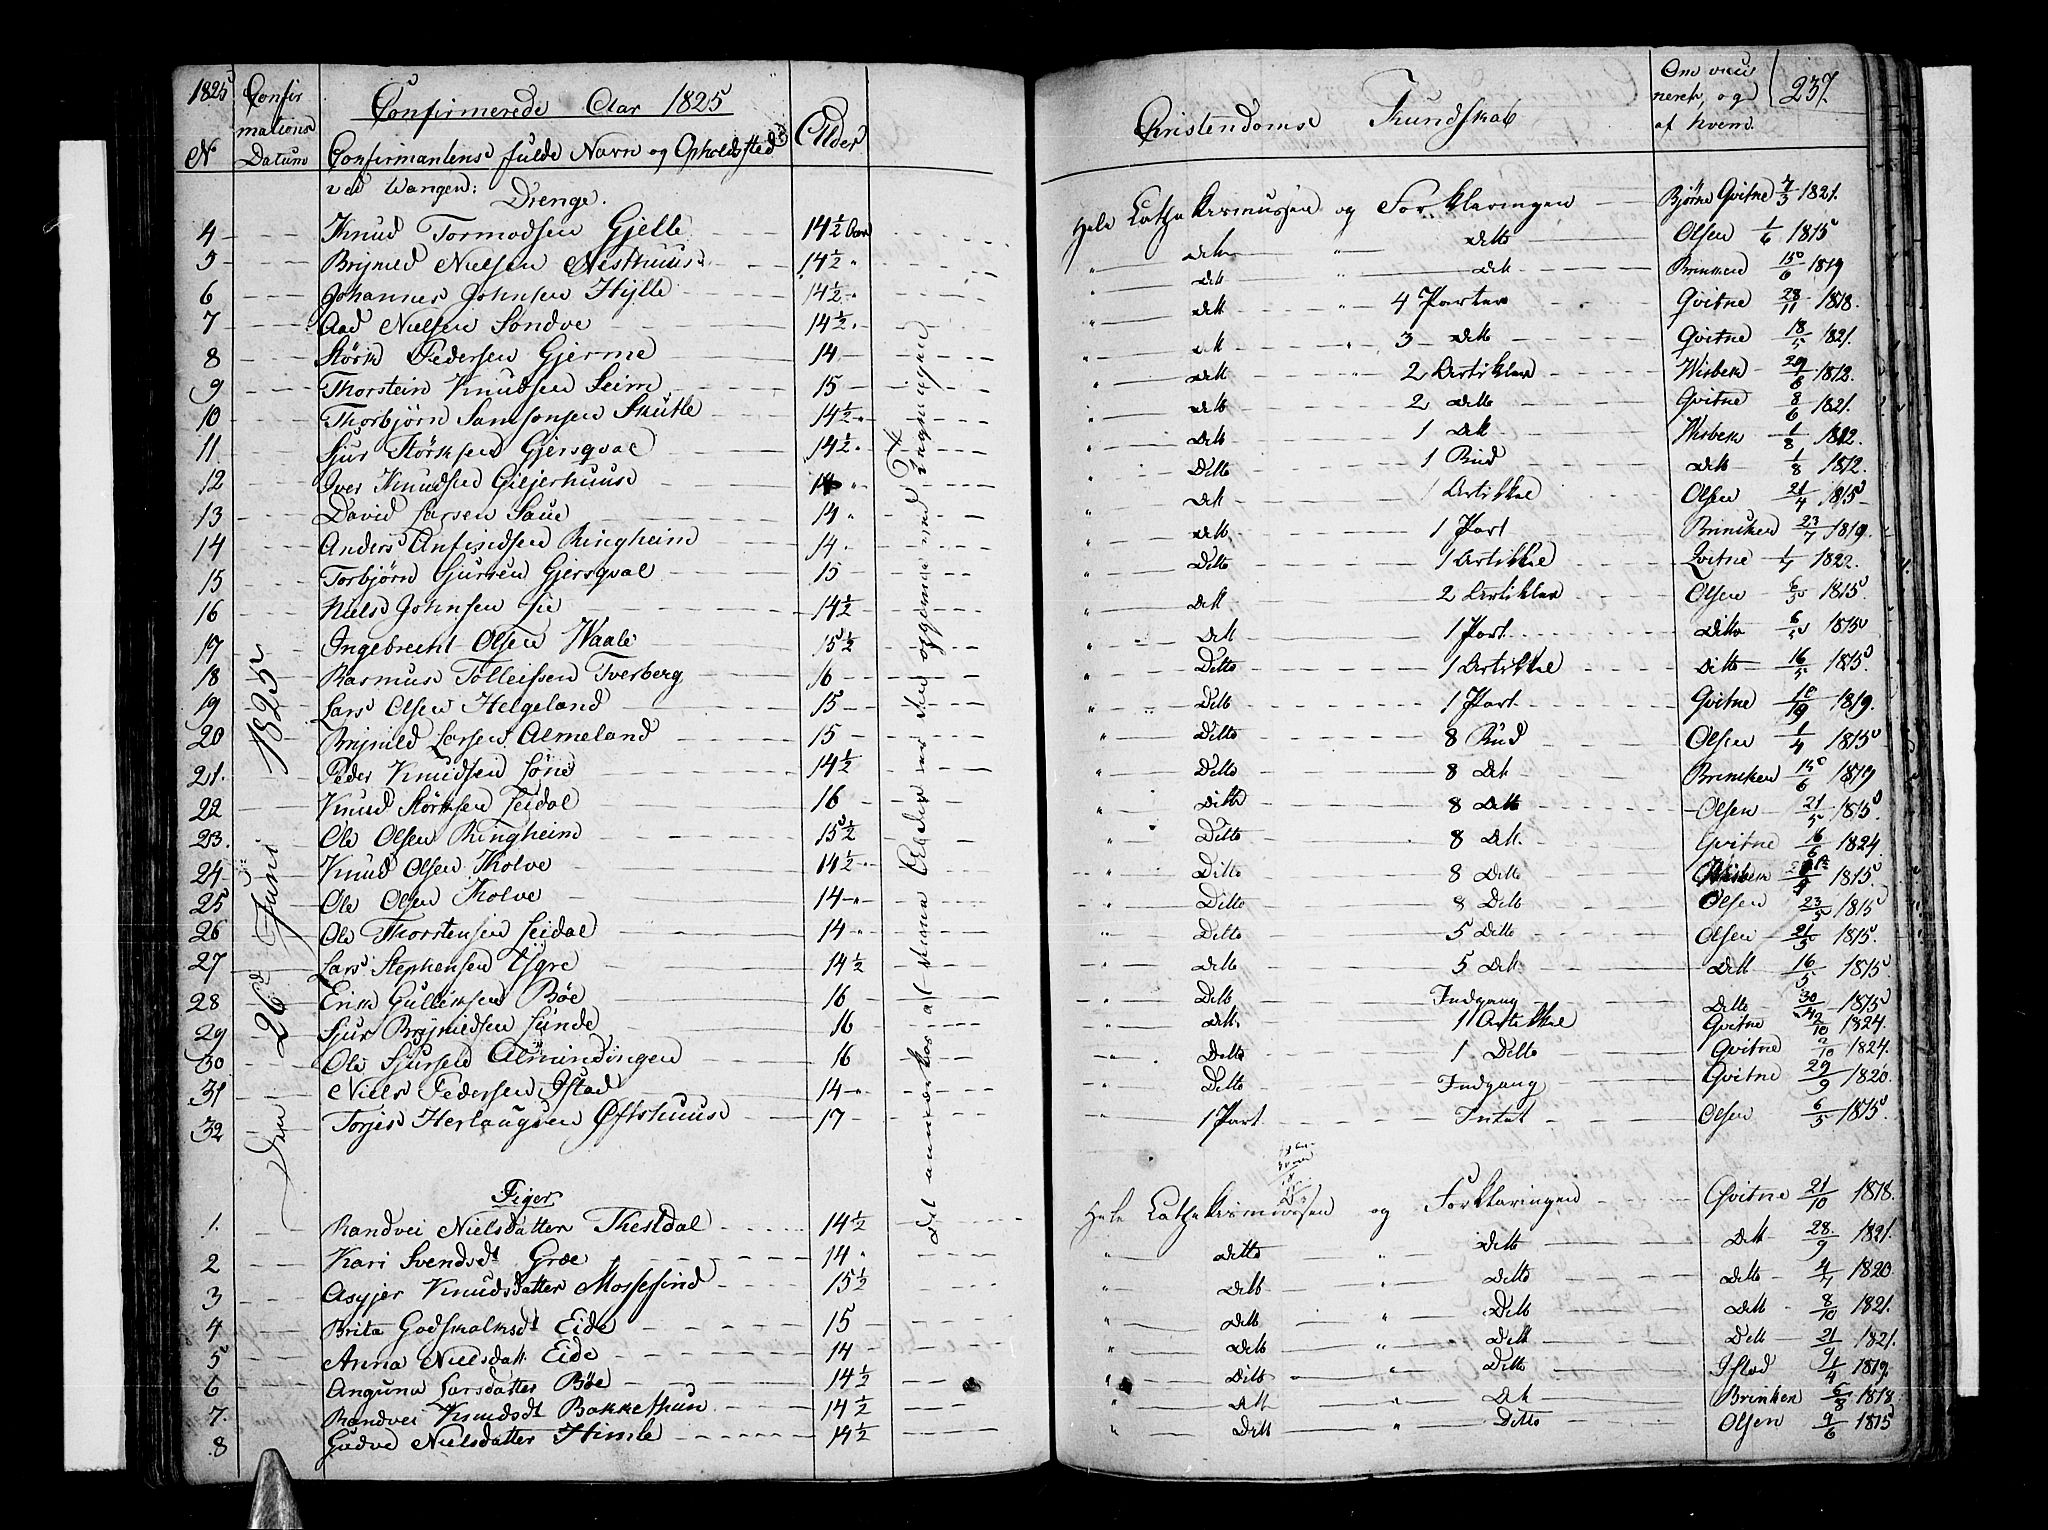 1825 Confirmations Datum
Confirmerede Aar 1825
N Confirmantens fulde Navn og Opholdsted Alder
Christendoms Kundskab
Om vaccineret, og af hvem. 237
ved Wangen: Drenge.
4 Knud Tormodsen Gjelle 14½ Aar Hele Cathekismussen og Forklaringen Bjørne Qvitne 7/3 1821.
5 Brynild Nielsen Nesthuus 14½ " Ditto Ditto Olsen 1/6 1815
6 Johannes Johnsen Hylle 14½ " Dito Dito Brinken 15/6 1819
7 Aad Nielsen Sondve 14½ " Dito 4 Parter Qvitne 28/11 1818.
8 Størk Pedersen Gjerme 14 Dito 3 Dito Qvitne 18/5 1821.
9 Thorstein Knudsen Seim 15 Dito 2 Artikler Wisbek 29/8 1812.
10 Thorbjørn Samsonsen Skutle 14½ Dito 2 Ditto Qvitne 8/6 1821.
11 Sjur Størksen Gjersqval 14½ Dito 1 Dito Wisbek 1/8 1812.
12 Iver Knudsen Giljerhuus 14 " Ditto 1 Bud Dito 1/8 1812.
13 David Larsen Saue 14 " Dito 1 Artikkel Olsen 21/4 1815
14 Anders Anfindsen Ringheim 14 Dito 1 Part Brinken 23/7 1819.
15 Torbjørn Sjursen Gjersqval 15 Ditto 1 Artikkel Qvitne 1822.
16 Niels Johnsen Lie 14½ Dito 2 Artikler Olsen 6/5 1815.
17 Ingebrecht Olsen Waale 15½ Dito 1 Part Ditto 6/5 1815
18 Rasmus Tolleifsen Tverberg 16 Ditto 1 Artikkel Ditto 16/5 1815
19 Lars Olsen Helgeland 15 Dito 1 Part Qvitne 10/19 1819.
20 Brynild Larsen Almeland 15 Ditto 8 Bud Olsen 1/4 1815
21. Peder Knudsen Lønne 14½ Ditto 8 Dito Brinken 15/6 1819
22 Knud Størksen Leidal 16 Ditto 8 Ditto Olsen 21/5 1815
23. Ole Olsen Ringheim 15½ Ditto 8 Dito. Qvitne 16/6 1824
24. Knud Olsen Kolve 14½ Ditto 8 Ditto 1815.
25 Ole Olsen Kolve 14 Ditto 8 Ditto Olsen 23/5 1815
26 Ole Thorstensen Leidal 14 Ditto 5 Ditto Olsen 21/5 1815.
27 Lars Stephensen Ygre 14½ Dito 5 Dito Dito 16/5 1815
28 Erik Gulleiksen Bøe 16 Dito Indgang Ditto 30/4 1815
29 Sjur Brynildsen Lunde 16 Dito 1 Artikkel Qvitne 2/10 1824.
30 Ole Sjursen Almindingen 16 Ditto 1 Ditto Qvitne 2/10 1824.
31 Niels Pedersen Istad 14 Ditto Indgang Qvitne 29/9 1820.
32 Torjes Herlaugsen Øfsthuus 17 1 Part Intet Olsen 6/5 1815.
Den 26de Juni 1825
Det anmærkes at denne Alder er den opgivne ved Tegningen
Piger
1. Randvei Nielsdatter Thestdal 14½ Hele Cathekismussen og Forklaringen Qvitne 21/10 1818.
2 Kari Svendsdt Græe 14 Ditto Ditto Dito 28/9 1821.
3 Asgjer Knudsdatter Mossefind 15½ Dito Ditto Ditto 4/11 1820
4 Brita Godskalksdt Eide 15 Dito Ditto Dito 8/10 1821.
5 Anna Nielsdatt Eide 14 Dito Dito Dito 21/9 1821.
6 Anguna Larsdatter Bøe 14½ Dito Ditto Istad 1/4 1819.
7. Randvei Knudsdt Bakkethun 14½ Dito Dito Brinken 6/8 1818
8 Gudve Nielsdatter Himle 14½ Dito Ditto Olsen 9/6 1815